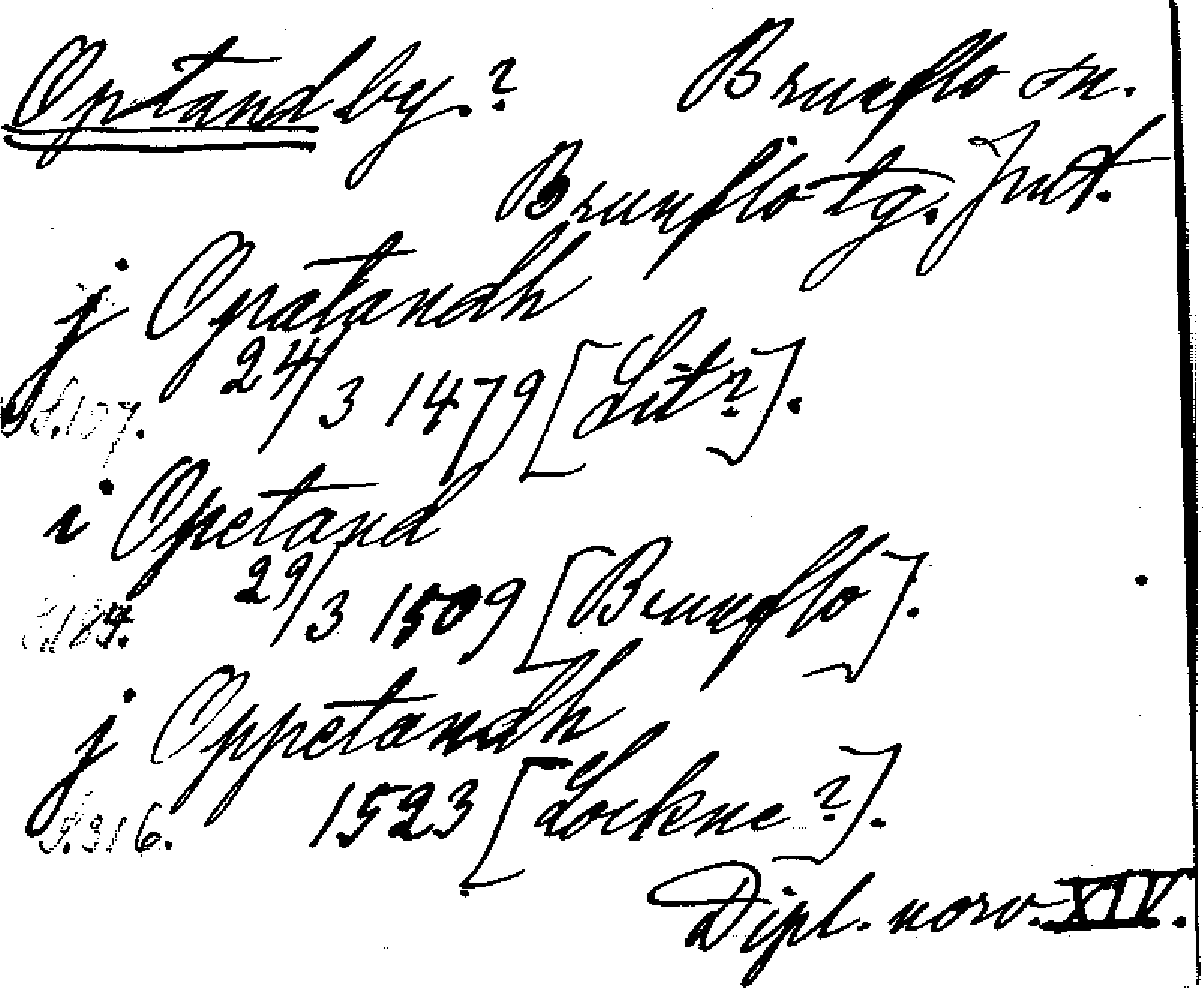 Optand by.? Brunflo sn.
Brunflo tg. Jmt.
j Opatandh
S.107. 24/3 1479 [Lit?].
i Opetand
S.184. 29/3 1509 [Brunflo].
j Oppetandh
S.316. 1523 [Lockne?].
Dipl. norv. XIV.